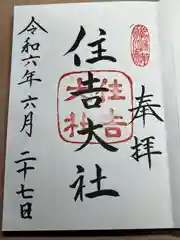 奉拝
住吉大社
令和六年六月二十七日